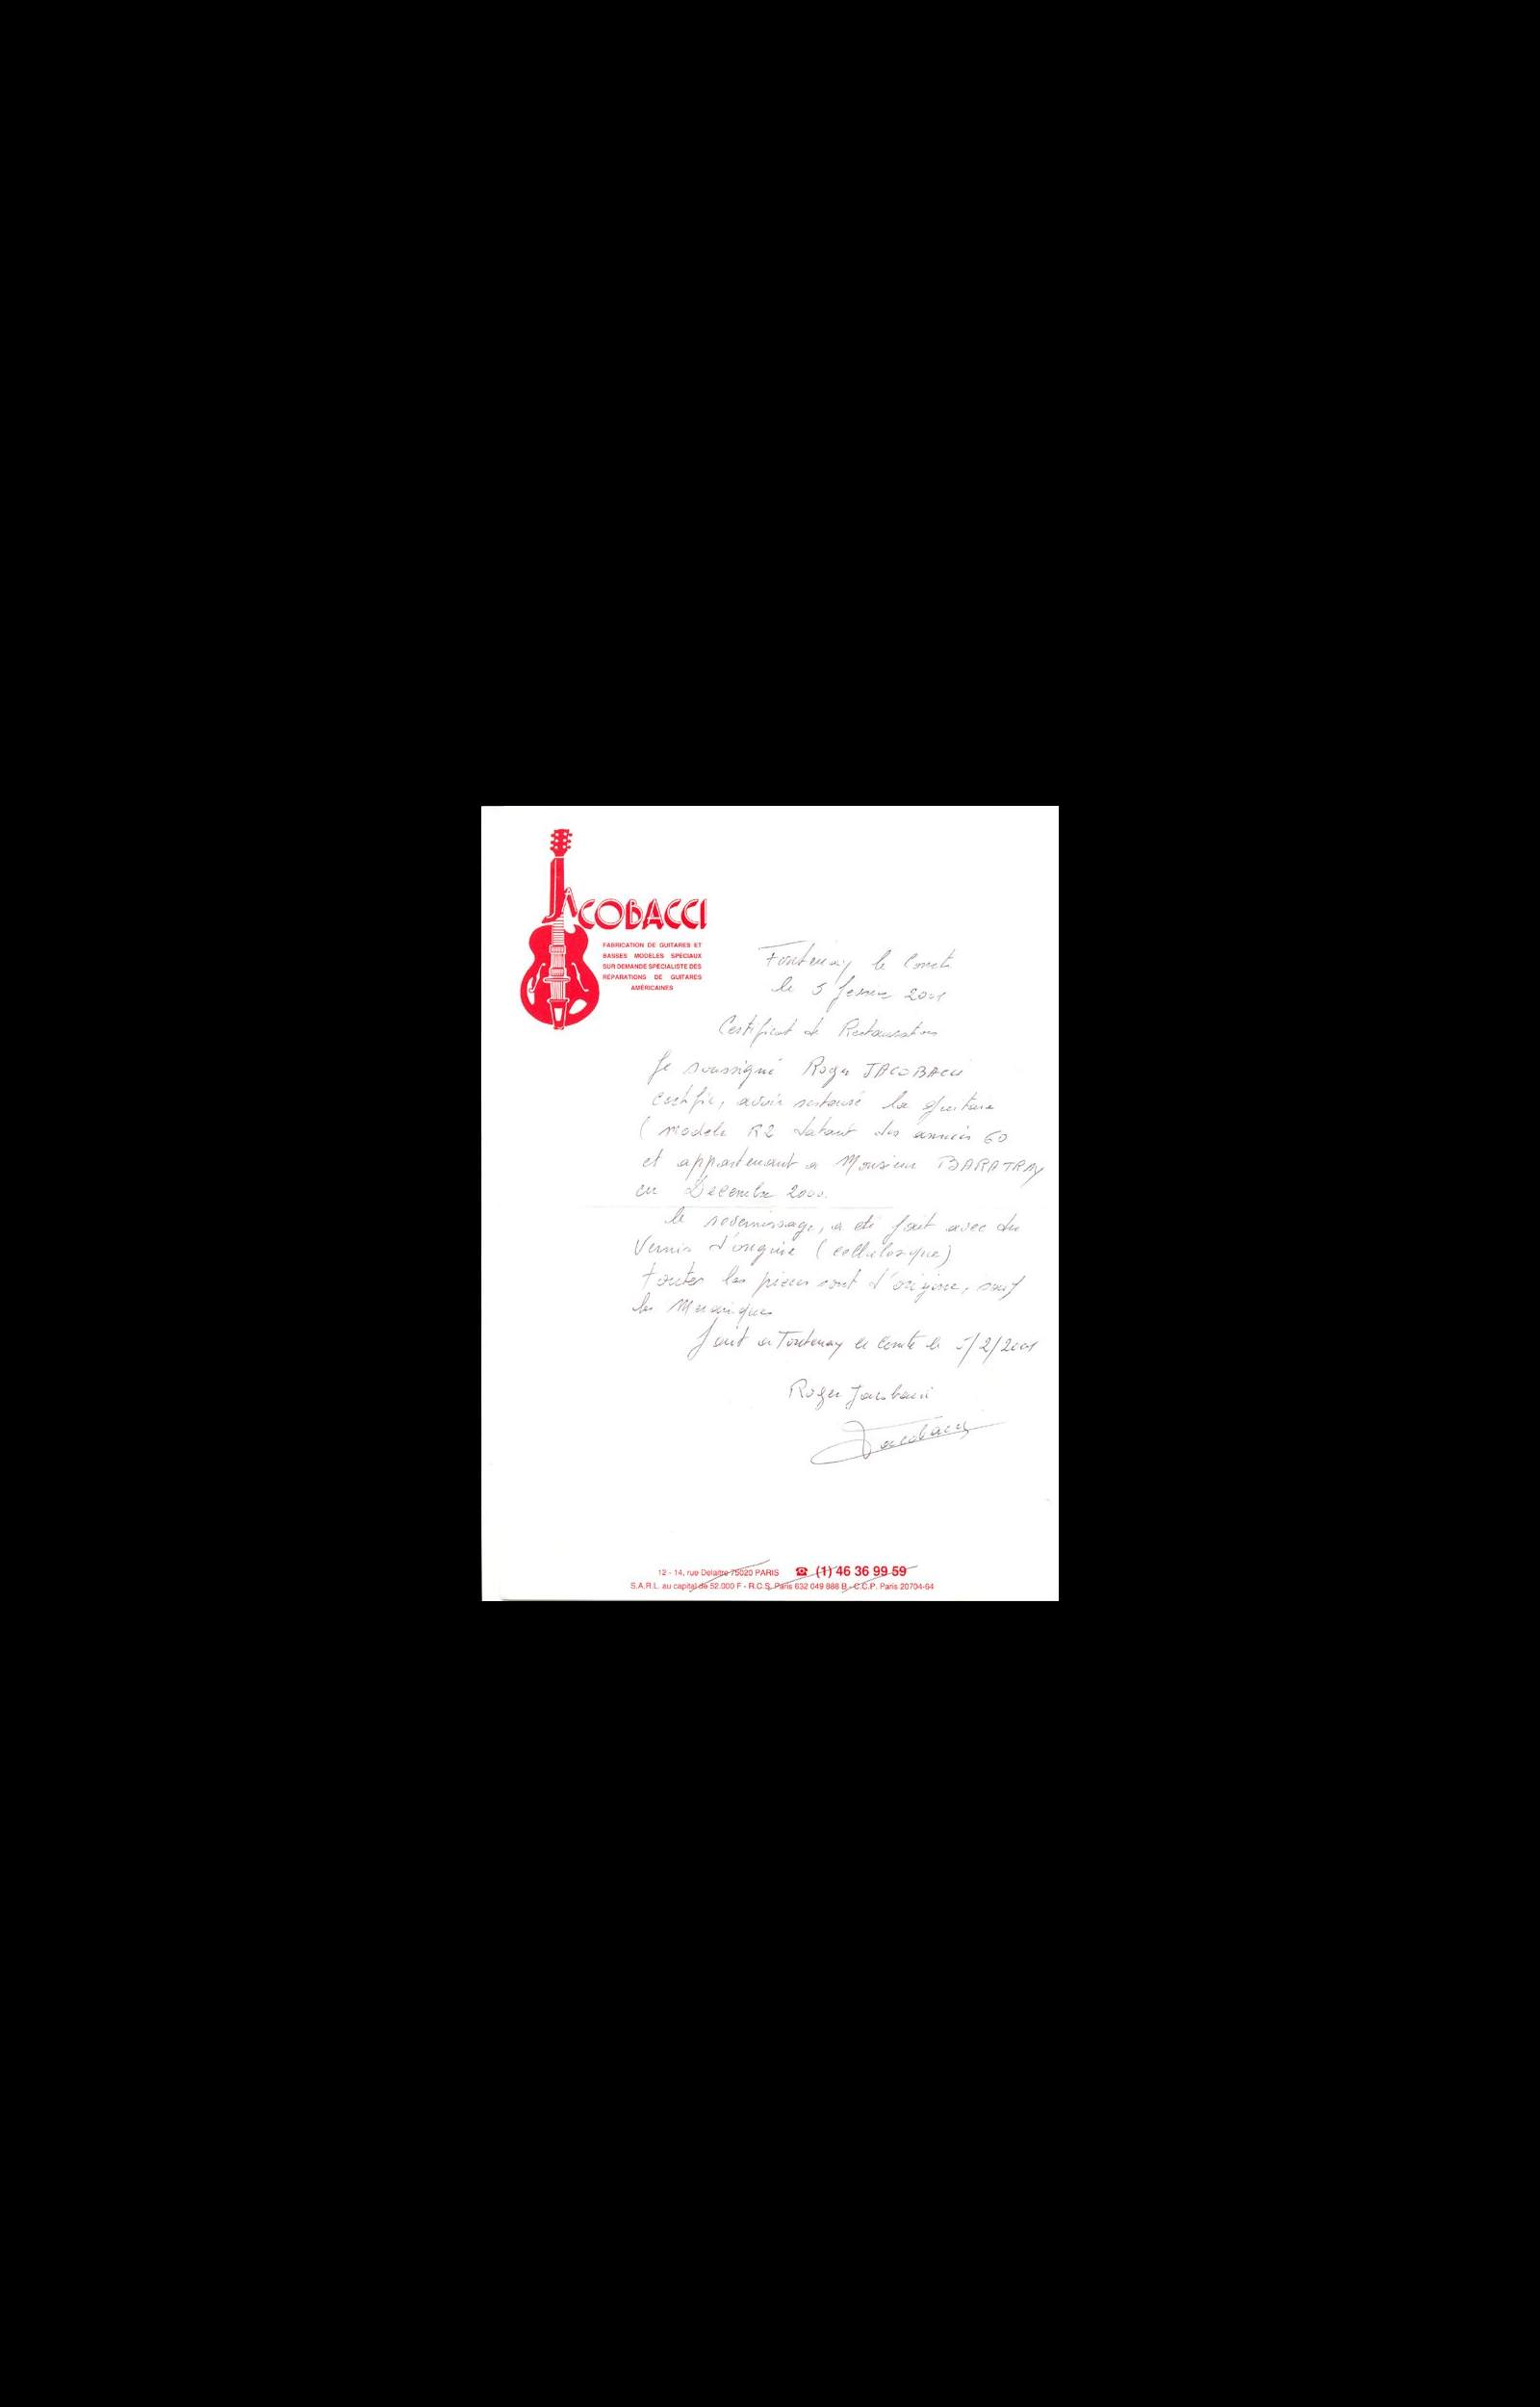 JACOBACCI
FABRICATION DE GUITARES ET
BASSES MODELES SPÉCIAUX
SUR DEMANDE SPÉCIALISTE DES
RÉPARATIONS DE GUITARES
AMÉRICAINES
Fontenay le Comte
le 5 février 2001
Certificat de Restauration
Je soussigné Roger JACOBACCI
certifie, avoir restauré la guitare
( modele R2 datant des années 60
et appartenant a Monsieur BARATRAY
en Decembre 2000.
le revernissage, a eté fait avec du
Vernis d'origine (cellulosique)
toutes les pieces sont d'origine, sauf
les Mecaniques
fait a Fontenay le Comte le 5/2/2001
Roger Jacobacci
Jacobacci
12 - 14, rue Delaitre 75020 PARIS ☎ (1) 46 36 99 59
S.A.R.L. au capital de 52.000 F - R.C.S. Paris 632 049 888 B - C.C.P. Paris 20704-64